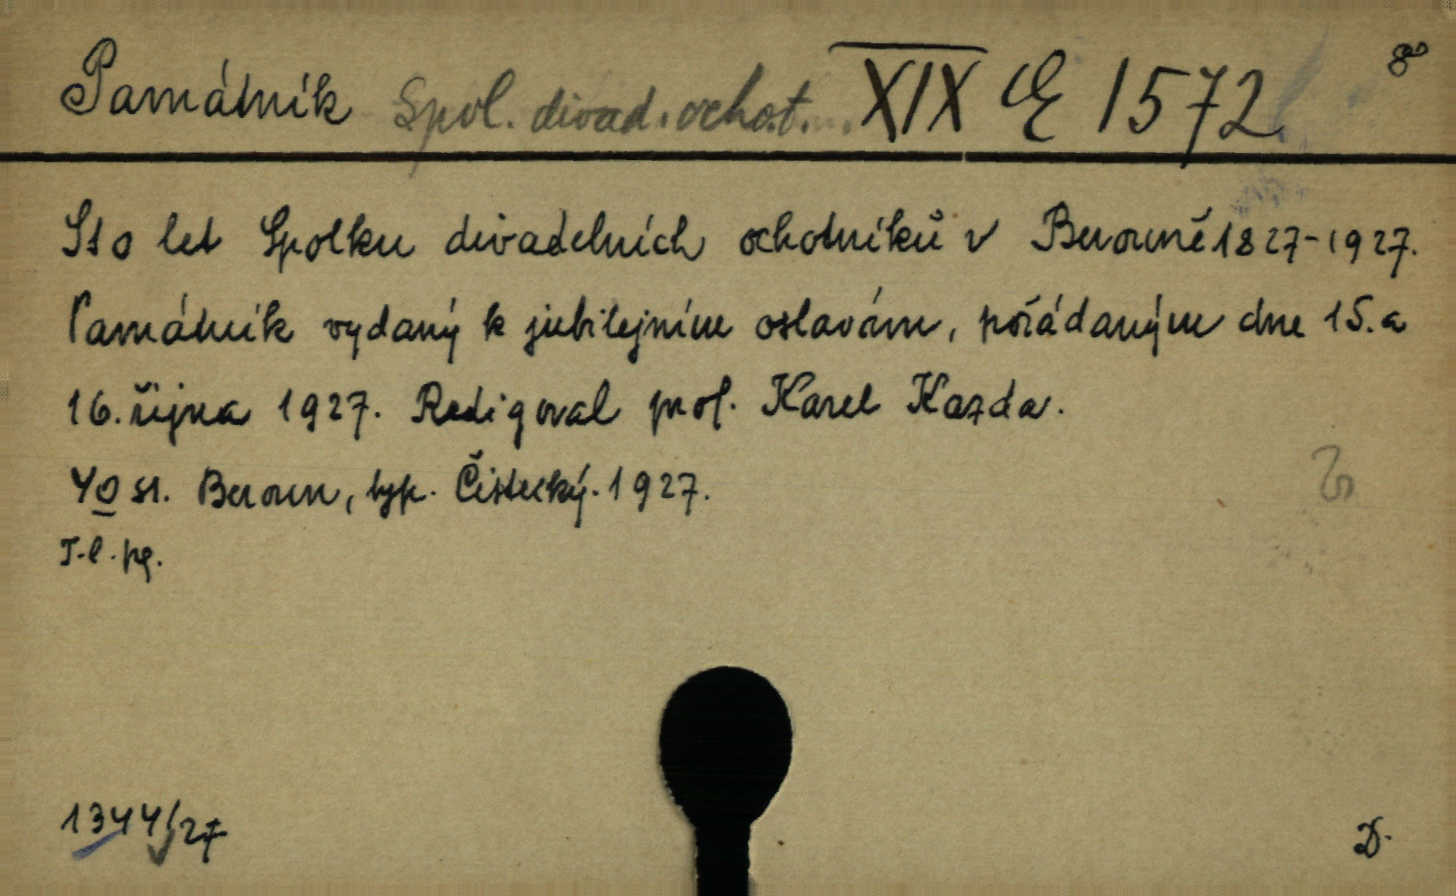 Památník Spol. divad. ochot. XIX E 1572 8°
Sto let Spolku divadelních ochotníků v Berouně 1827-1927.
Památník vydaný k jubilejním oslavám, pořádaným dne 15. a
16. října 1927. Redigoval prof. Karel Kazda.
40 st. Beroun, typ. Čistecký. 1927.
T. l. pg.
1344/27
D.